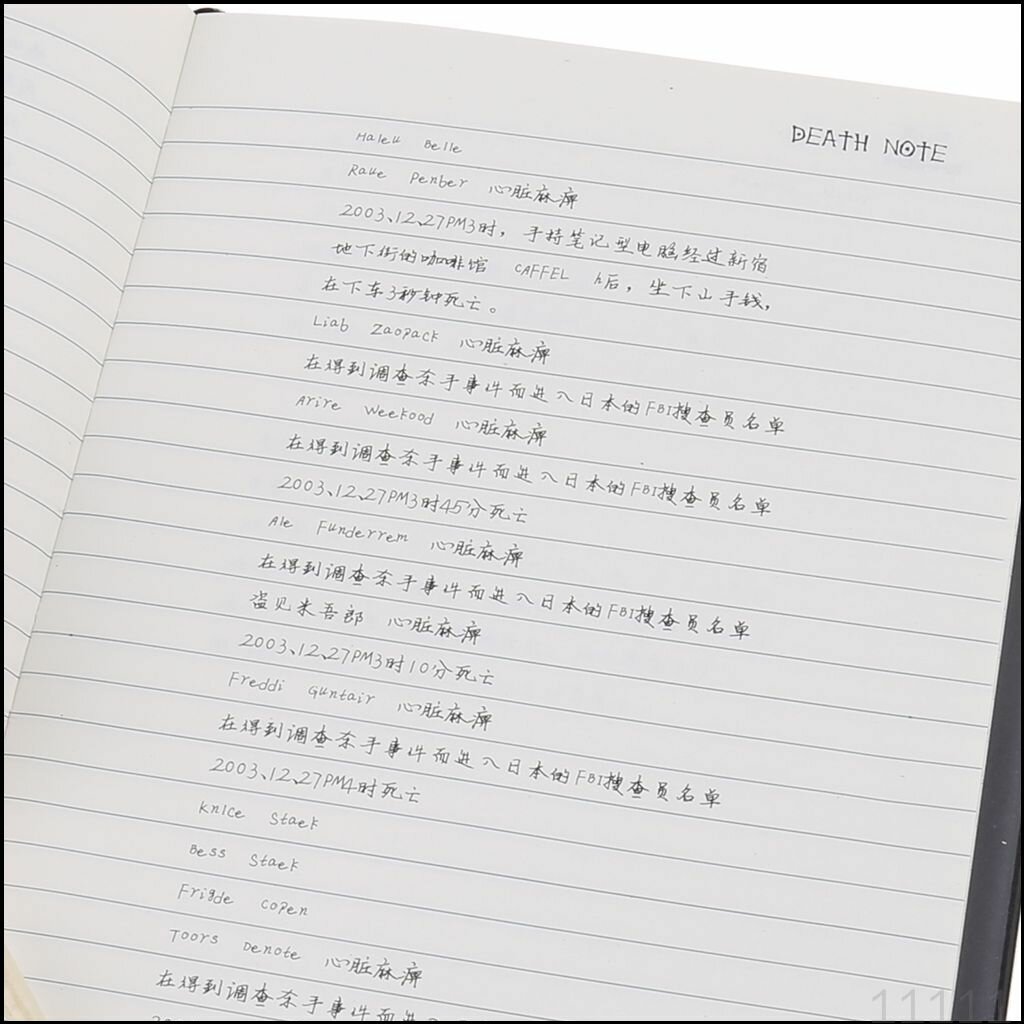 DEATH NOTE
Haleu Belle
Raue Penber 心脏麻痹
2003、12、27PM3时，手持笔记型电脑经过新宿
地下街的咖啡馆 CAFFEL 后，坐下山手线，
在下车3秒钟死亡。
Liab Zaopack 心脏麻痹
在得到调查杀手事件而进入日本的FBI搜查员名单
Arire Weekood 心脏麻痹
在得到调查杀手事件而进入日本的FBI搜查员名单
2003、12、27PM3时45分死亡
Ale Funderrem 心脏麻痹
在得到调查杀手事件而进入日本的FBI搜查员名单
盗见米吾郎 心脏麻痹
2003、12、27PM3时10分死亡
Freddi Guntair 心脏麻痹
在得到调查杀手事件而进入日本的FBI搜查员名单
2003、12、27PM4时死亡
Knice Staek
Bess Staek
Frigde Copen
Toors Denote 心脏麻痹
在得到调查杀手事件而进
11111